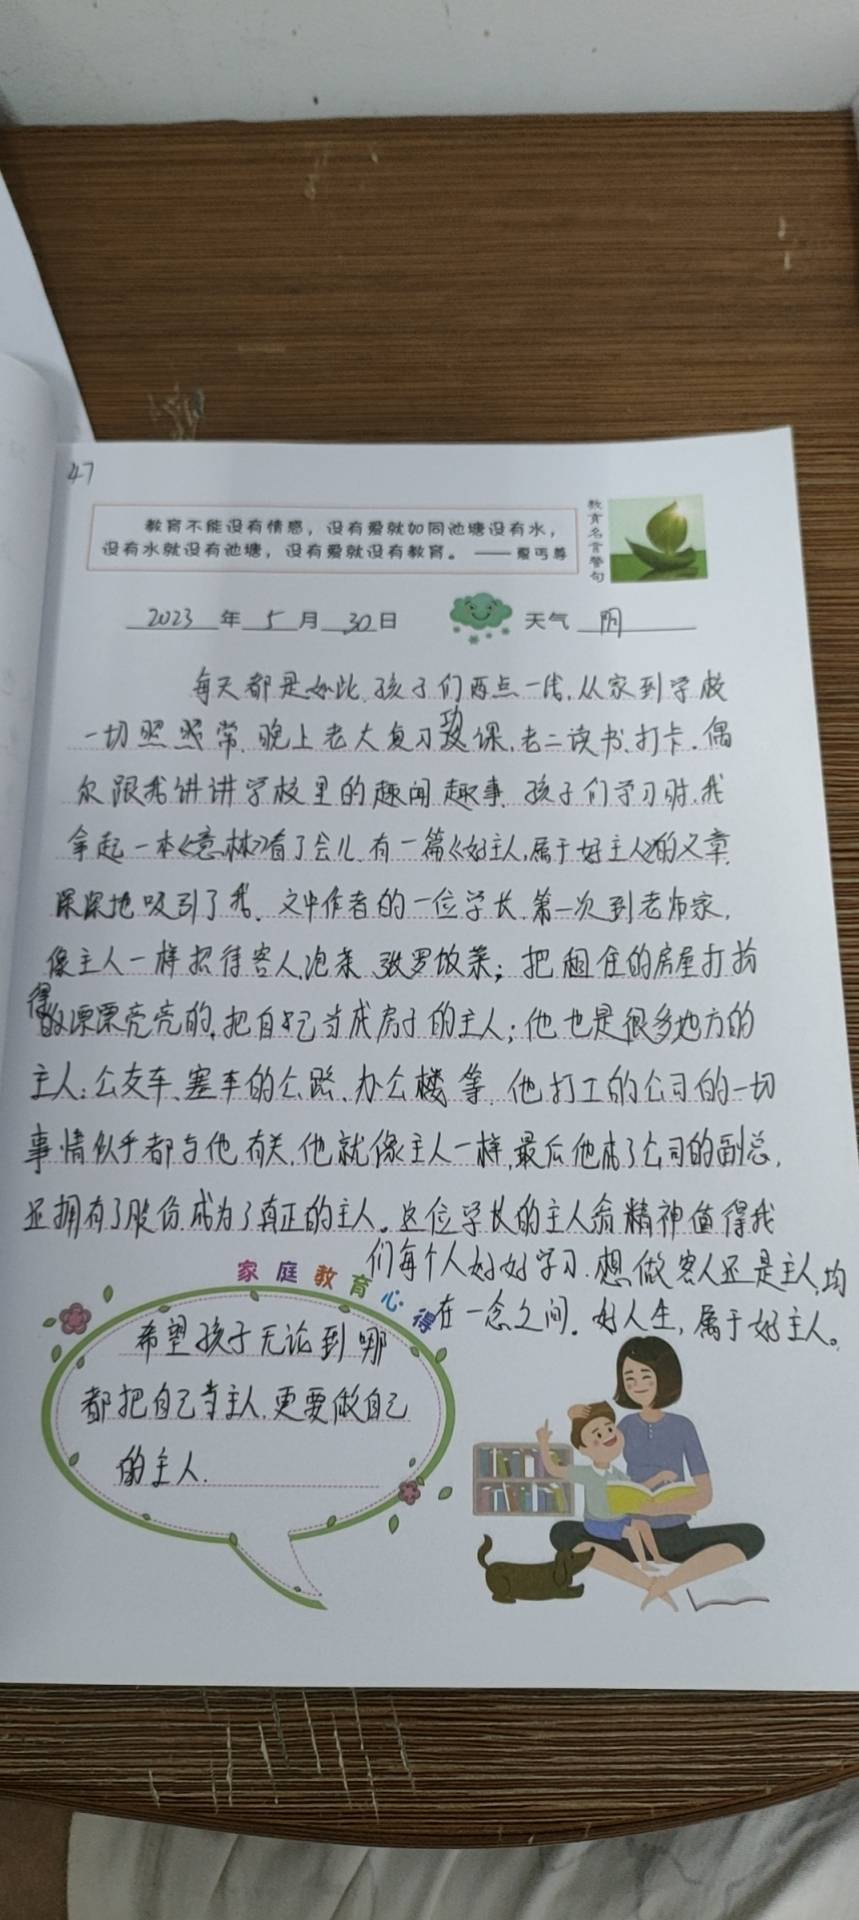 47
教育不能没有情感，没有爱就如同池塘没有水，
没有水就没有池塘，没有爱就没有教育。 ——夏丏尊
教育名言警句
2023年5月30日 天气 阴
每天都是如此,孩子们两点一线,从家到学校
一切照照常,晚上老大复习功课,老二读书、打卡.偶
尔跟我讲讲学校里的趣闻趣事.孩子们学习时,我
拿起一本《意林》看了会儿.有一篇《好主人,属于好主人》的文章,
深深地吸引了我.文中作者的一位学长,第一次到老师家,
像主人一样招待客人,泡茶,张罗饭菜；把租住的房屋打扮
得漂漂亮亮的,把自己当成房子的主人；他也是很多地方的
主人:公交车、塞车的公路、办公楼等.他打工的公司的一切
事情似乎都与他有关,他就像主人一样,最后他成了公司的副总,
还拥有了股份,成为了真正的主人。这位学长的主人翁精神值得我
们每个人好好学习.想做客人还是主人,均
在一念之间.好人生,属于好主人。
家庭教育心得
希望孩子无论到哪
都把自己当主人,更要做自己
的主人.